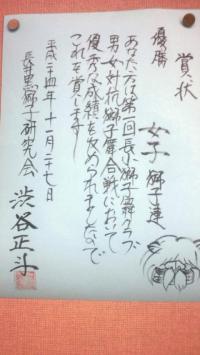 賞状
優勝
女子獅子連
あなた方は第一回長小獅子舞クラブ
男女対抗獅子舞合戦において
優秀な成績を収められましたので
これを賞します
平成二十四年十一月二十七日
長井黒獅子研究会
渋谷正斗